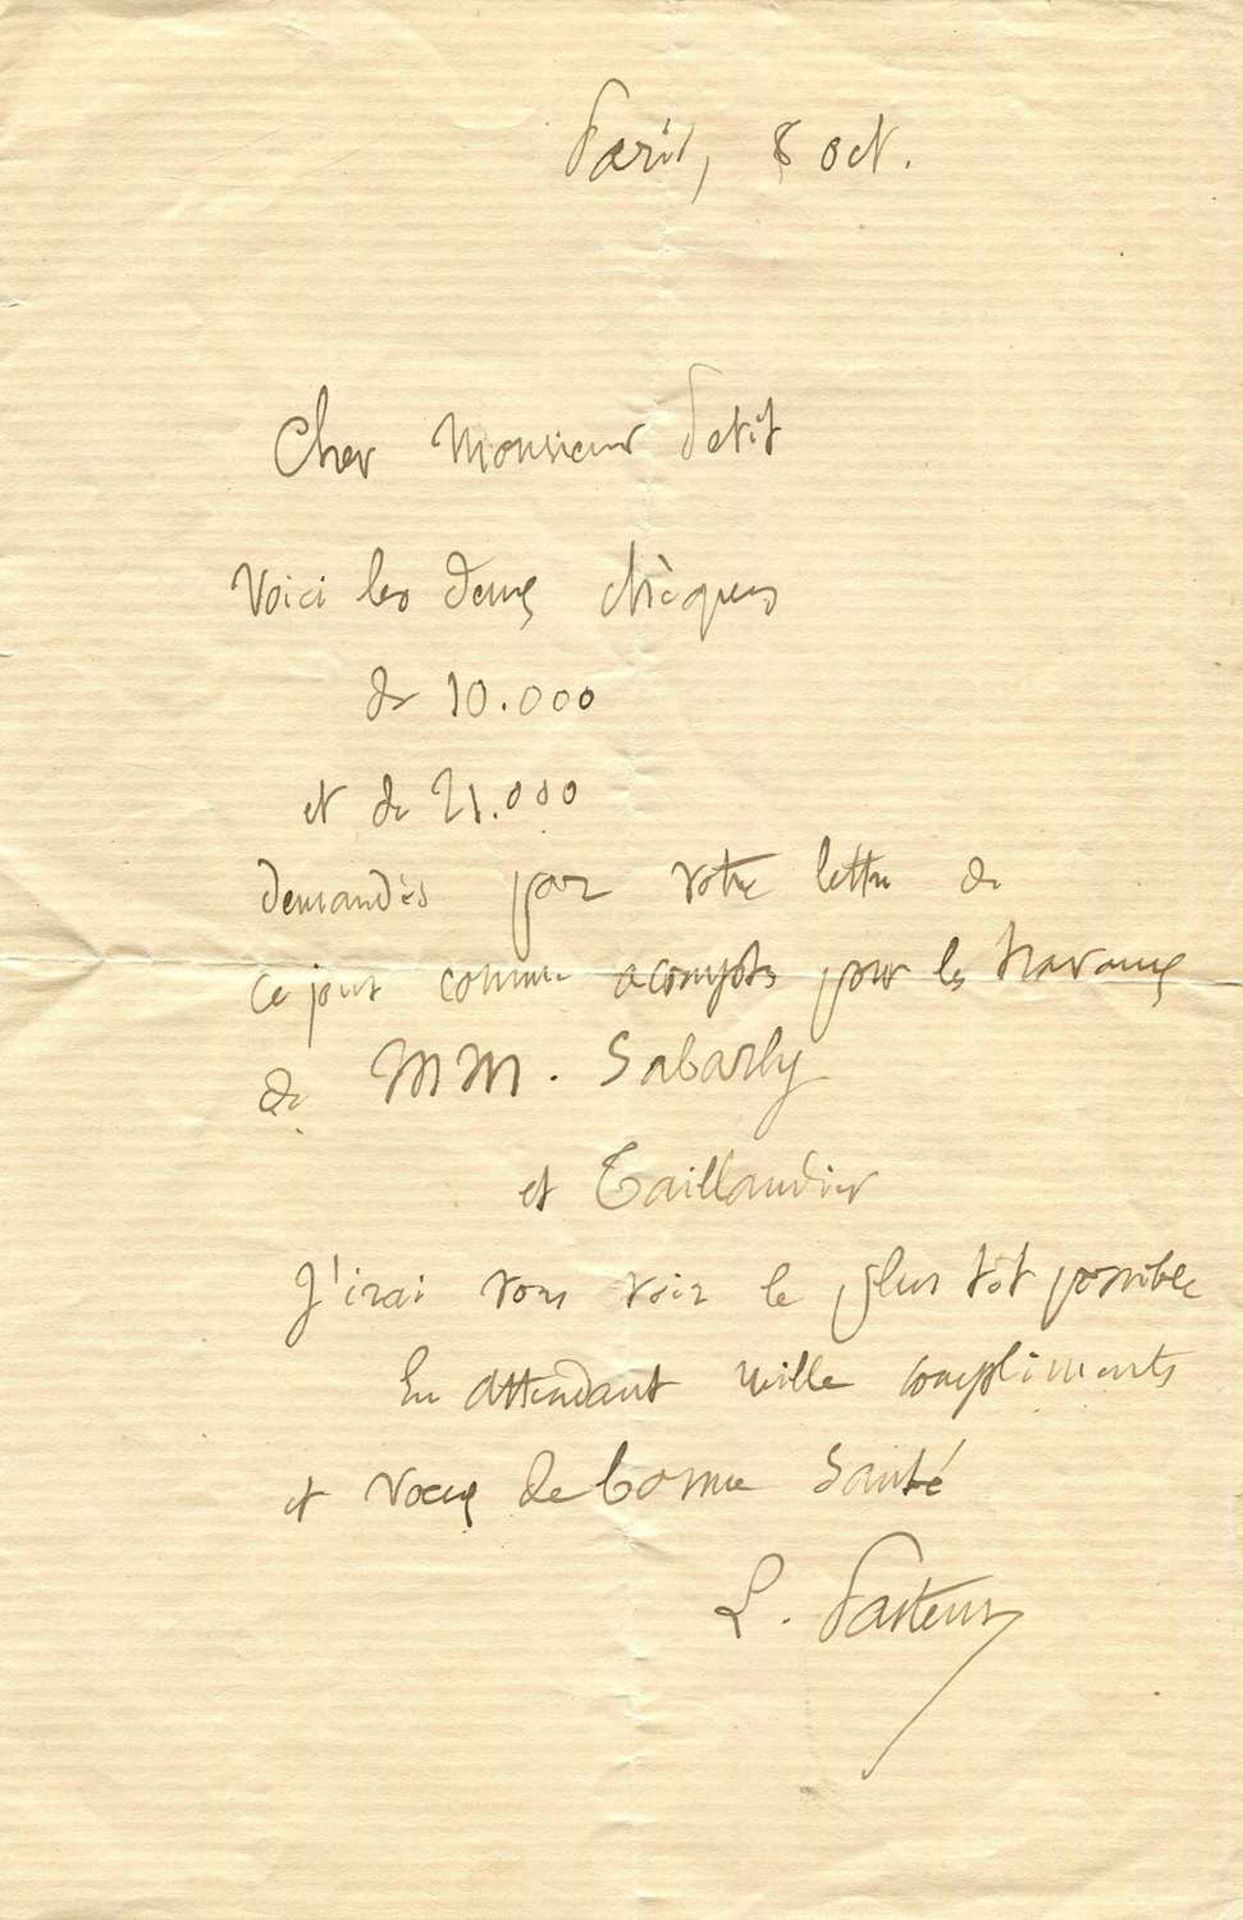 Paris, 8 oct.
Cher Monsieur Petit
Voici les deux chèques
de 10.000
et de 21.000
demandés par votre lettre de
ce jour comme acompte pour les travaux
de MM. Sabarly
et Taillandier
J'irai vous voir le plus tôt possible
En attendant mille compliments
et voeux de bonne santé
L. Pasteur